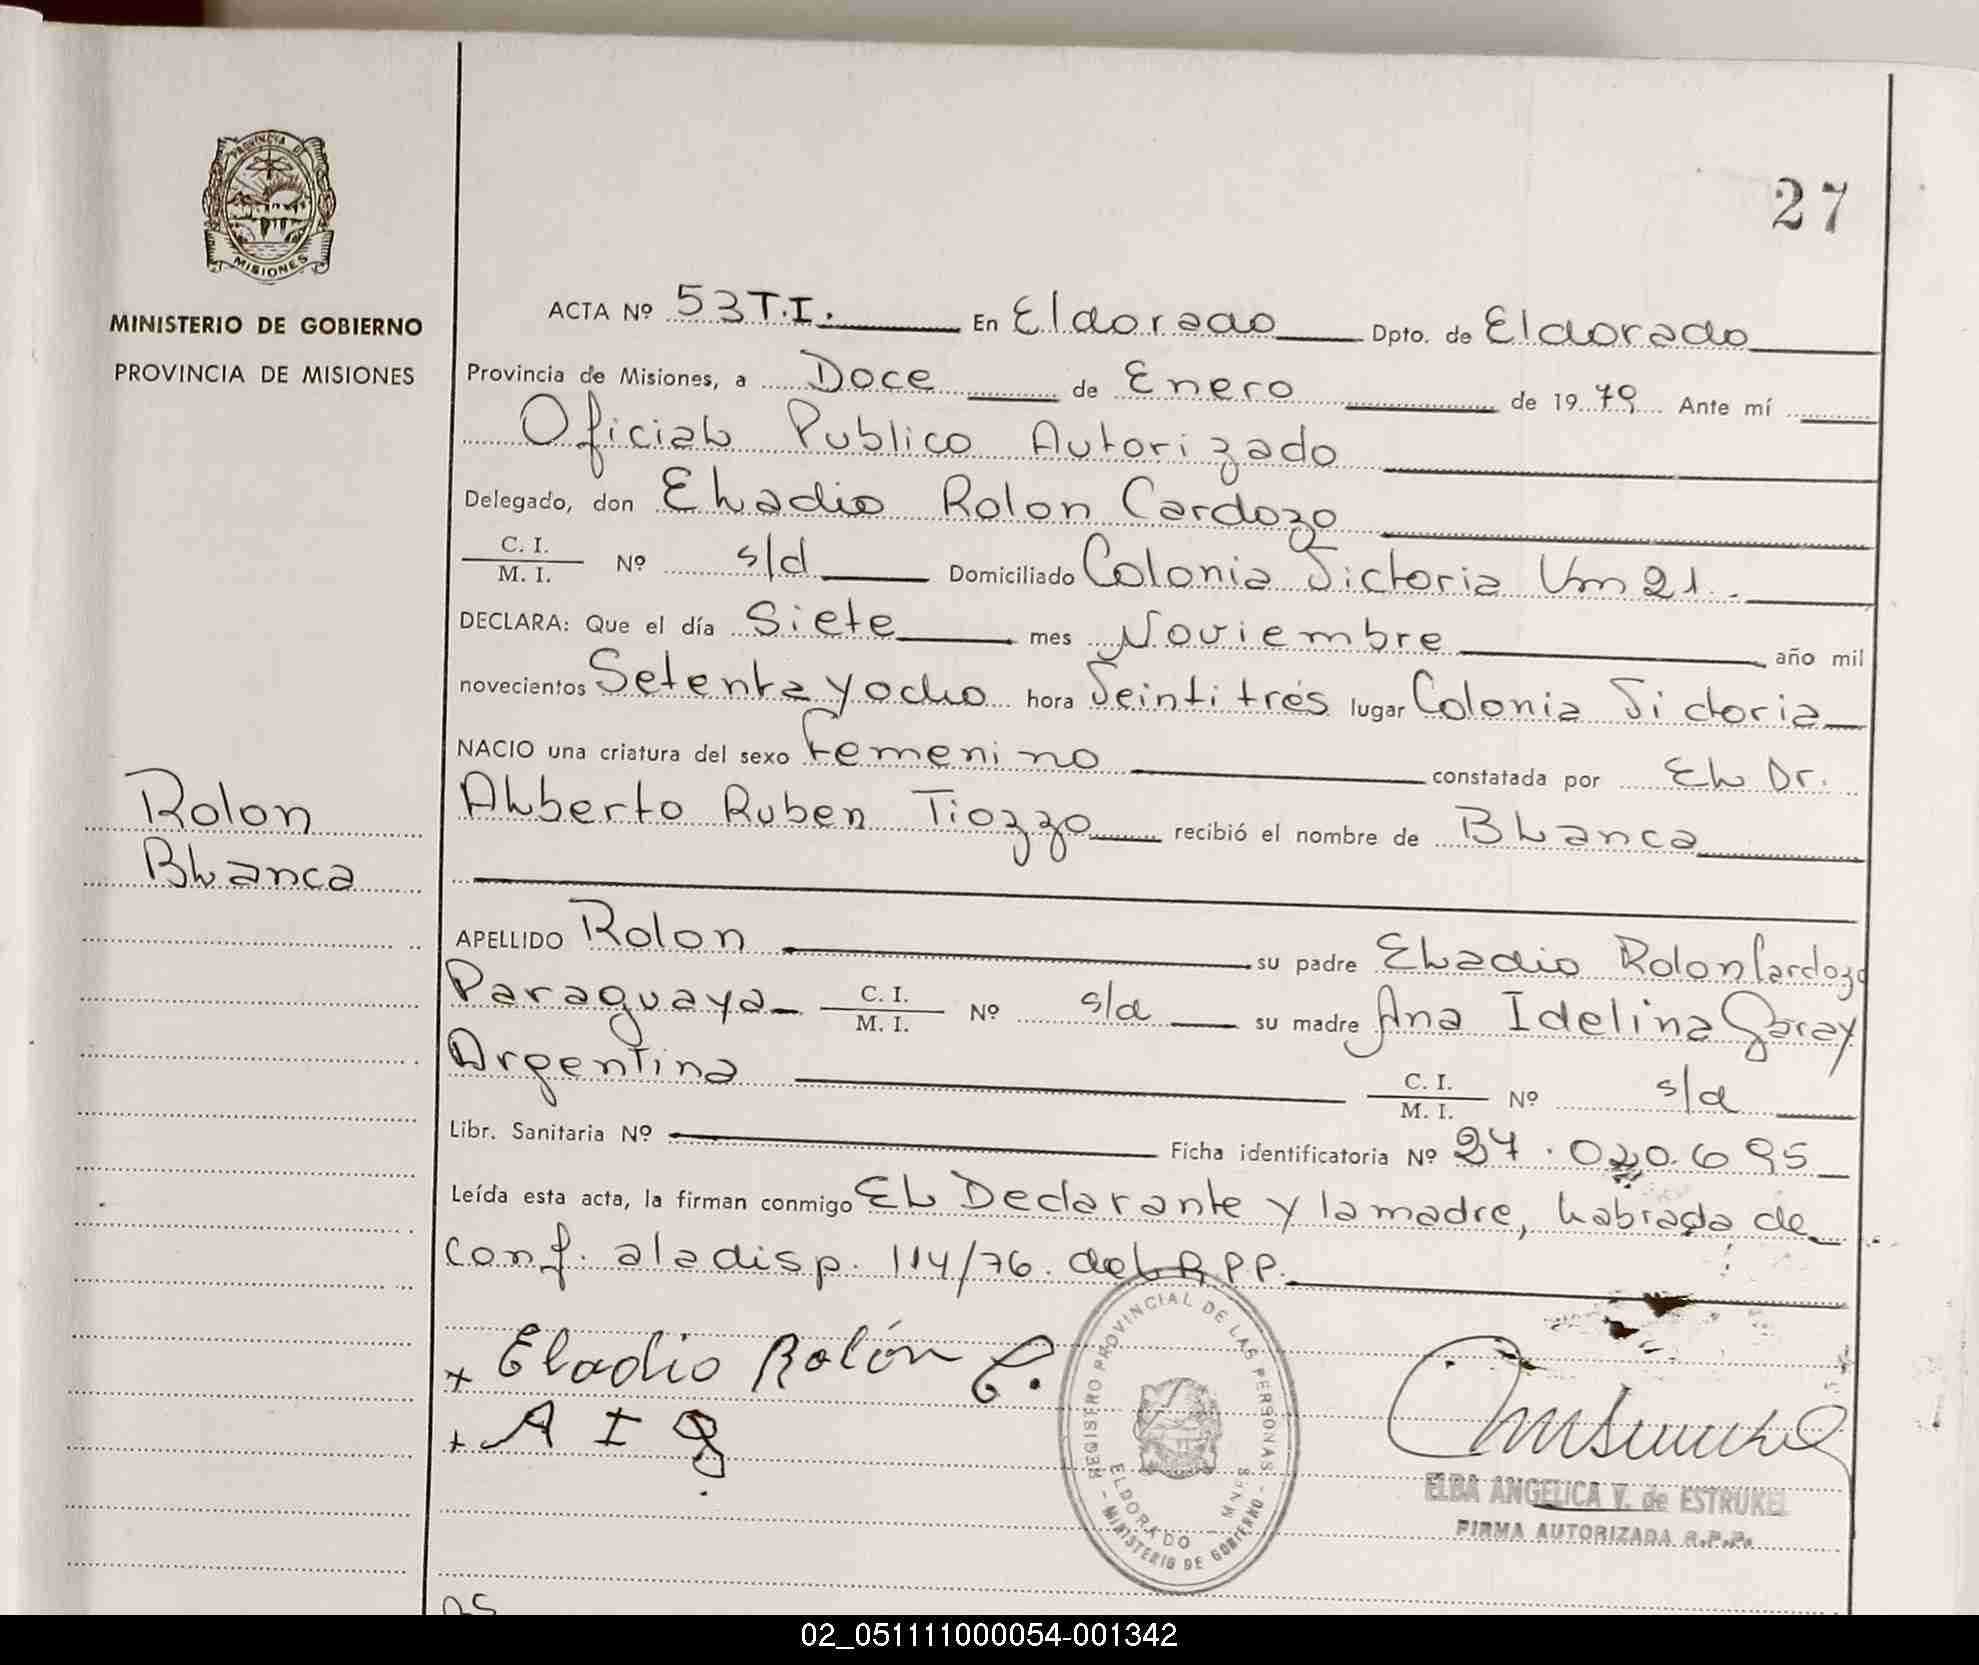 PROVINCIA DE
MISIONES
MINISTERIO DE GOBIERNO
PROVINCIA DE MISIONES
27
ACTA Nº 53 T.I. En Eldorado Dpto. de Eldorado
Provincia de Misiones, a Doce de Enero de 1979 Ante mí
Oficial Publico Autorizado
Delegado, don Eladio Rolon Cardozo
C. I.
M. I. Nº s/d Domiciliado Colonia Victoria Km 21.
DECLARA: Que el día Siete mes Noviembre año mil
novecientos Setenta y ocho hora Veintitrés lugar Colonia Victoria
NACIO una criatura del sexo Femenino constatada por El Dr.
Alberto Ruben Tiozzo recibió el nombre de Blanca
Rolon
Blanca
APELLIDO Rolon su padre Eladio Rolon Cardozo
Paraguaya C. I.
M. I. Nº s/d su madre Ana Idelina Garay
Argentina C. I.
M. I. Nº s/d
Libr. Sanitaria Nº Ficha identificatoria Nº 27.020.695
Leída esta acta, la firman conmigo El Declarante y la madre, labrada de
conf. a la disp. 114/76. del R.P.P.
+ Eladio Rolón C.
+ A I G
REGISTRO PROVINCIAL DE LAS PERSONAS
ELDORADO - MNES
- MINISTERIO DE GOBIERNO -
ELBA ANGELICA V. de ESTRUKEL
FIRMA AUTORIZADA R.P.P.
02_051111000054-001342